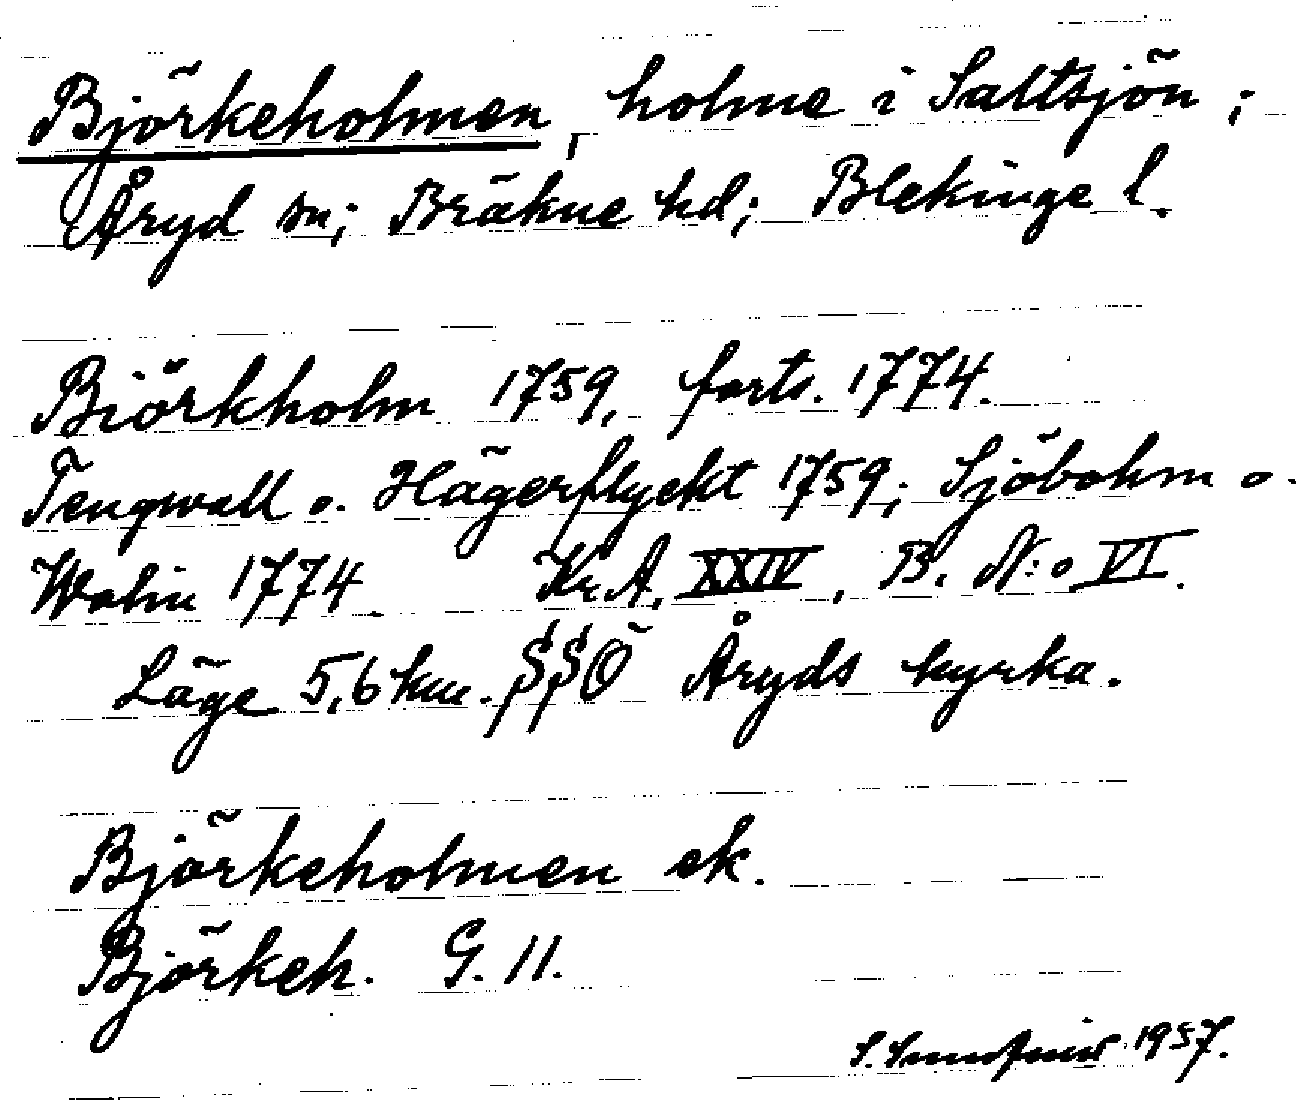 Björkeholmen, holme i Saltsjön;
Åryd sn; Bräkne hd; Blekinge l.
Biörkholm 1759, forts. 1774.
Tengwall o. Hägerflyckt 1759; Sjöbohm o.
Wahin 1774. Kr.A. XXIV, B. N:o VI.
Läge 5,6 km. SSÖ Åryds kyrka.
Björkeholmen ek.
Björkeh. G. 11.
S. 1957.